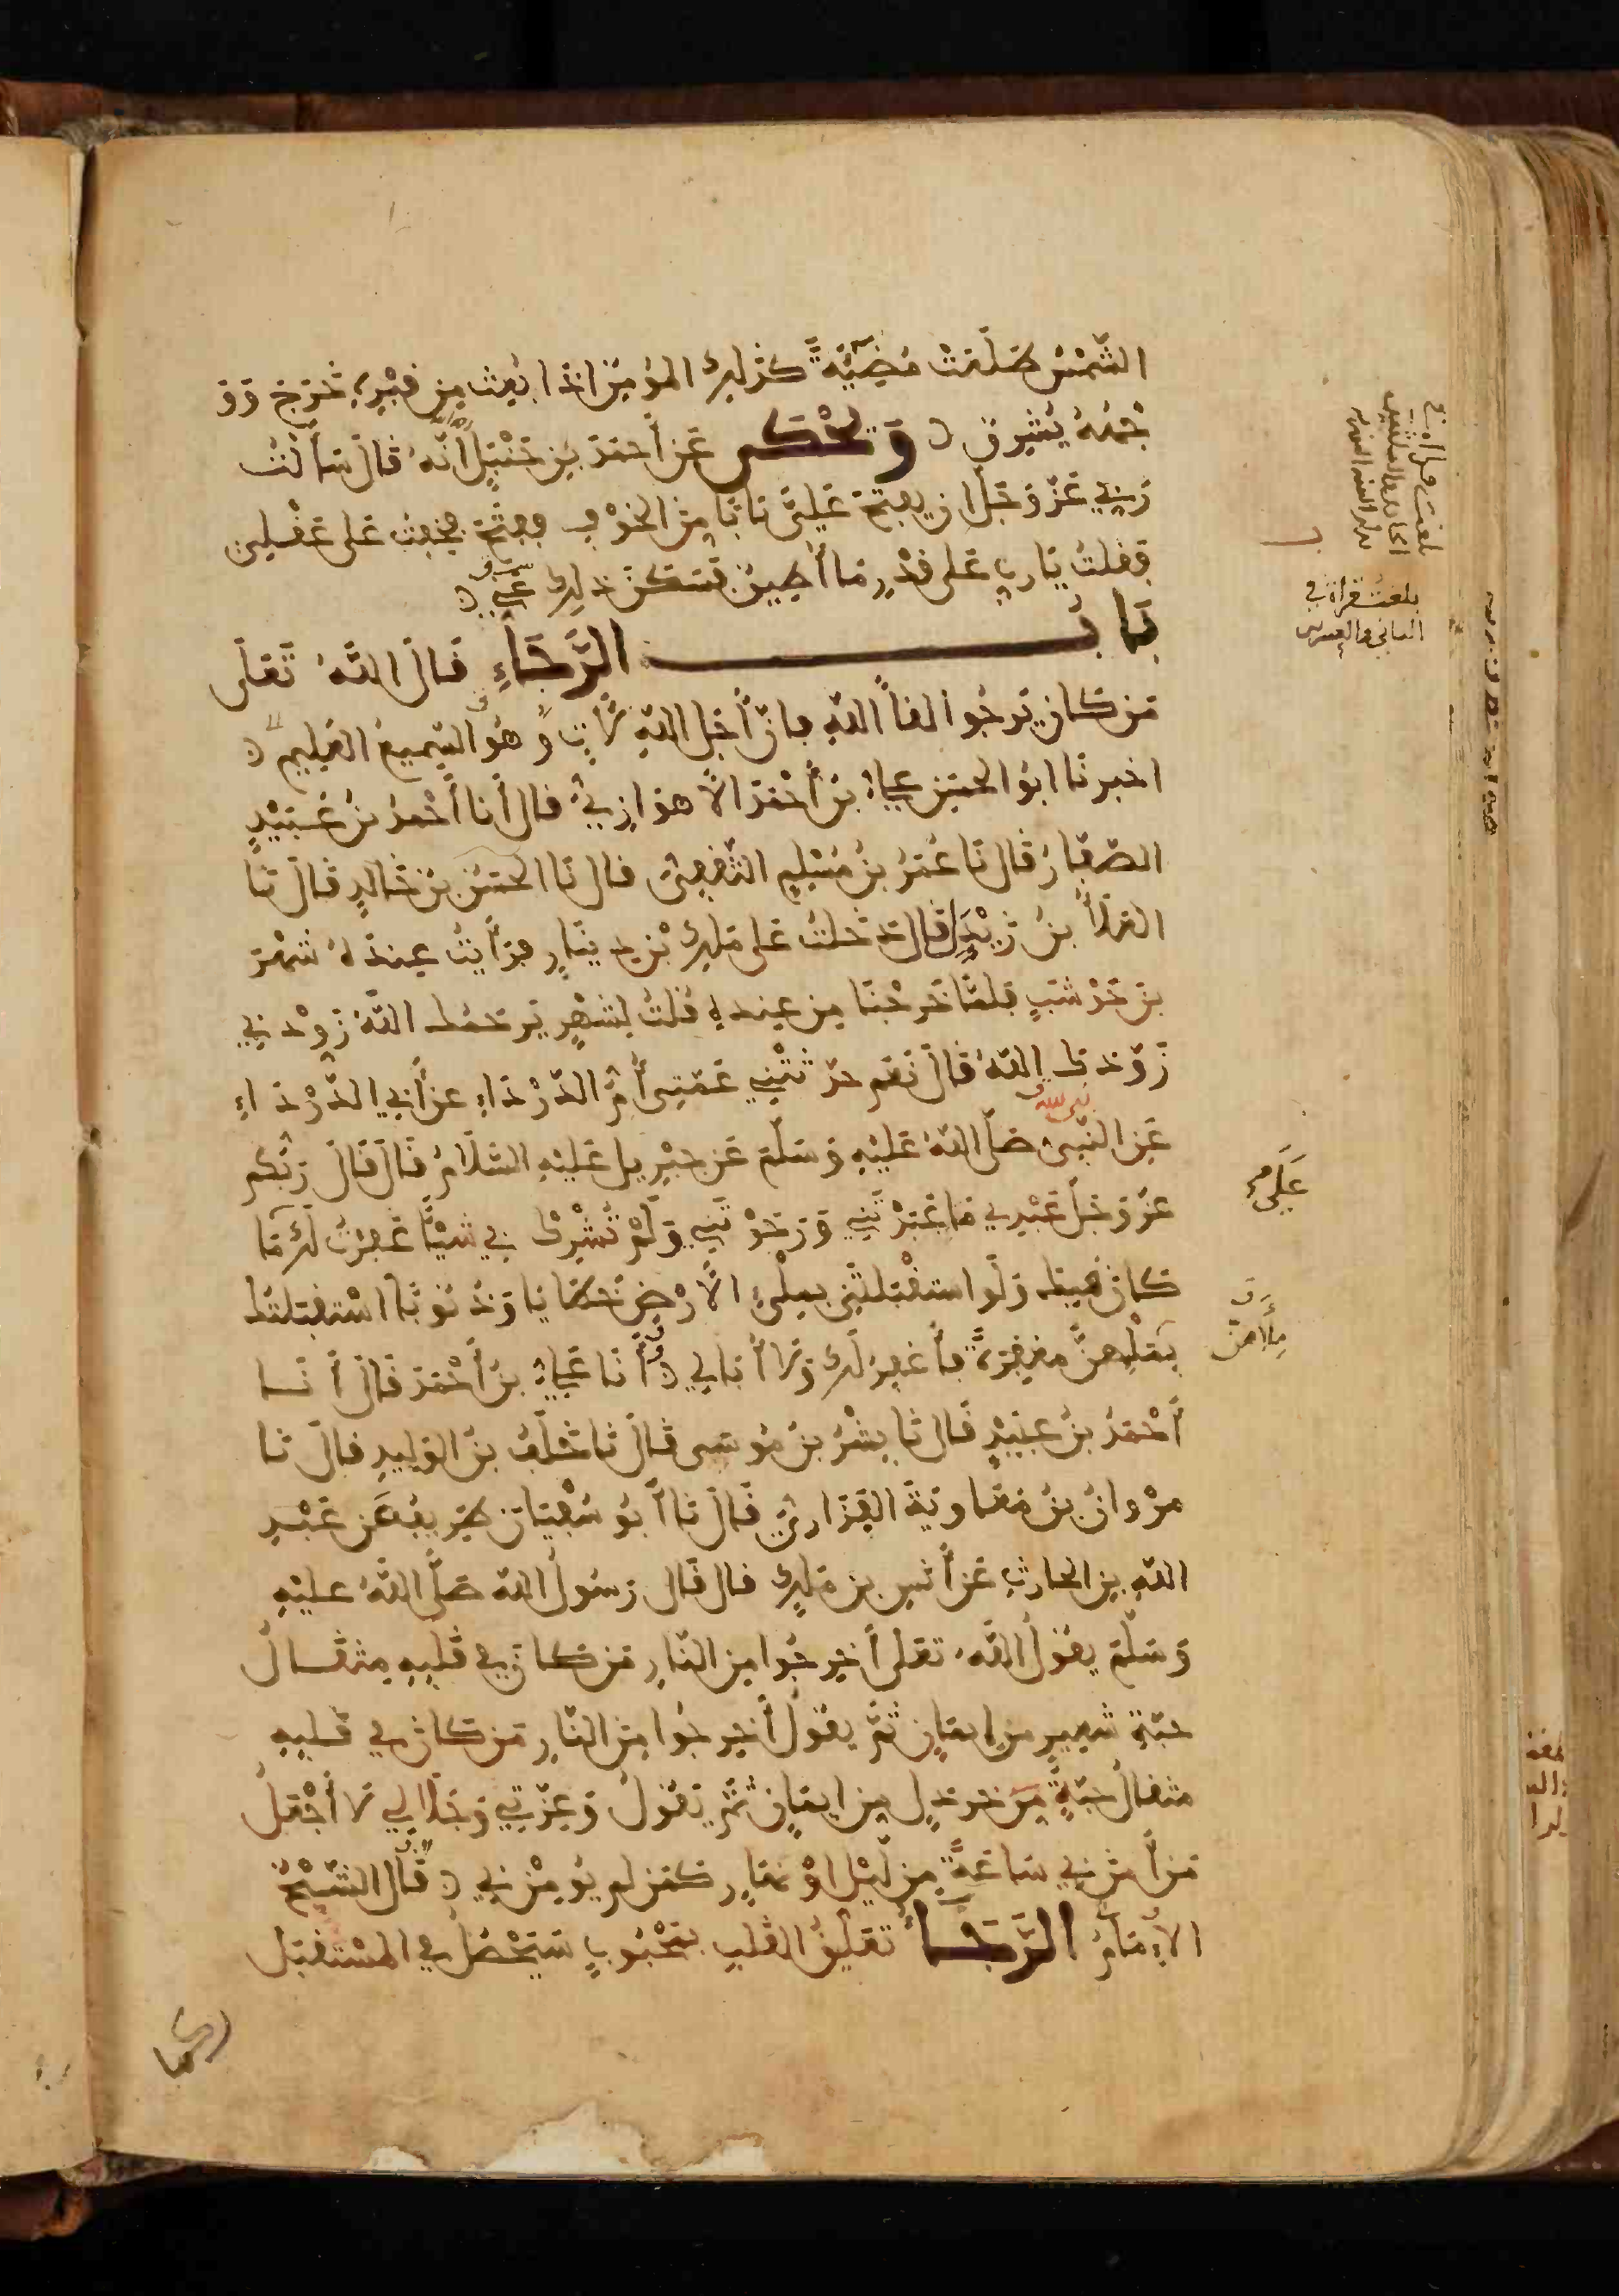 الشَّمْسُ طَلَعَتْ مُضِيَّةً كَذَلِكَ المُؤمِنُ اذا بُعِثَ مِن قَبْرِهِ خَرَجَ وَوَ
جْهُهُ يُشْرِقُ وَيُحْكَى عَن أَحمَدَ بنِ حَنْبَلٍ أَنَّهُ قَالَ سَأَلْتُ
رَبِّي عَزَّ وَجَلَّ ان يفتحَ عَلَيَّ بَابًا مِنَ الخَوْفِ ففتَحَ فخِفتُ عَلى عَقْلِي
فَقُلتُ يَا رَبِّ عَلى قَدْرِ مَا أُطِيقُ فَسَكَنَ ذلِكَ عَنِّي
بَابُ الرَّجَاءِ قَالَ اللَّهُ تَعَلَى
مَن كَانَ يَرجُوا لقاَ اللهِ فإنَّ أَجَلَ اللهِ لَأتٍ وَهُوَ السَّمِيعُ العَلِيمُ
اخبرنَا ابُو الحسَنِ عَلِيُّ بنُ أَحْمَدَ الأَهوَازِيُّ قال أنا أَحْمَدُ بنُ عُبَيْدٍ
الصَّفَّارُ قَال نَا عُمَرُ بنُ مُسْلِمٍ الثَّقَفِيُّ قال نَا الحسَنُ بنُ خَالِدٍ قَالَ نَا
العَلَاُ بنُ زَيْدَلٍ قَالَ دَخلتُ عَلى مَلِكِ بْنِ دِينَارٍ فرَأَيتُ عِندَهُ شَهْرَ
بنَ حَوْشَبٍ فَلمَّا خَرجْنَا مِن عِندهِ قُلتُ لِشَهْرٍ يَرحمُكَ اللَّهُ زَوِّدنِي
زَوَّدَكَ اللَّهُ قَالَ نَعَم حدَّثتْنِي عَمَّتِي أُمُّ الدَّرْدَاءِ عن أَبِي الدَّرْدَاءِ
عَنِ النَّبِيِّ صَلَّى اللَّهُ عَلَيْهِ وَسَلَّمَ عَن جِبْرِيلَ عَلَيْهِ السَّلَامُ قَالَ قَالَ رَبُّكُم
عزَّ وَجَلَّ عَبْدِي مَا عَبَدْتَنِي وَرَجَوْتَنِي وَلَمْ تُشْرِكْ بِي شَيْئًا غَفَرْتُ لَكَ مَا
كَانَ مِنكَ وَلَو استَقْبَلتَنِي بمِلْءِ الأَرْضِ خَطَايَا وَذُنُوبًا اسْتقبَلتُكَ
بمِلْئِهِنَّ مَغفِرَةً فأَغفِرُ لَكَ وَلَا أُبَالِي أَنَا عَلِيُّ بنُ أَحْمَدَ قَالَ أَنَا
أَحْمَدُ بنُ عبَيْدٍ قَالَ نَا بِشْرُ بنُ مُوسَى قَالَ نَا خَلَفُ بنُ الوَلِيدِ قَالَ نَا
مَرْوانُ بنُ مُعَاوِيَةَ الفَزَارِيُّ قَالَ نَا أَبُو سُفْيَانَ طَرِيفٌ عَن عَبْدِ
اللهِ بنِ الحَارِثِ عَن أَنَسِ بنِ مَلِكٍ قال قَال رَسُولُ اللهِ صَلَّى اللَّهُ عَلَيْهِ
وَسَلَّمَ يقُولُ اللَّهُ تَعَلى أَخرِجُوا مِنَ النَّارِ مَن كَانَ في قَلْبِهِ مِثقَالُ
حَبَّةِ شعِيرٍ مِن إيمَانٍ ثُمَّ يقُولُ أَخرِجُوا مِنَ النَّارِ مَن كَانَ في قَلبِهِ
مثقَالُ حَبَّةٍ مِن خَردَلٍ مِن إيمَانٍ ثُمَّ يَقُولُ وَعِزَّتِي وَجَلَالِي لَا أَجْعَلُ
مَن أمَنَ بِي سَاعَةً مِن لَيْلٍ اوْ نَهَارٍ كَمَن لم يُومِنْ بِي قَالَ الشَّيْخُ
الإِمَامُ الرَّجَاءُ تَعَلُّقُ القَلبِ بمَحْبُوبٍ سَيَحْصُلُ في المُسْتَقبَل
بلغت قراة في
الثاني والعشرين